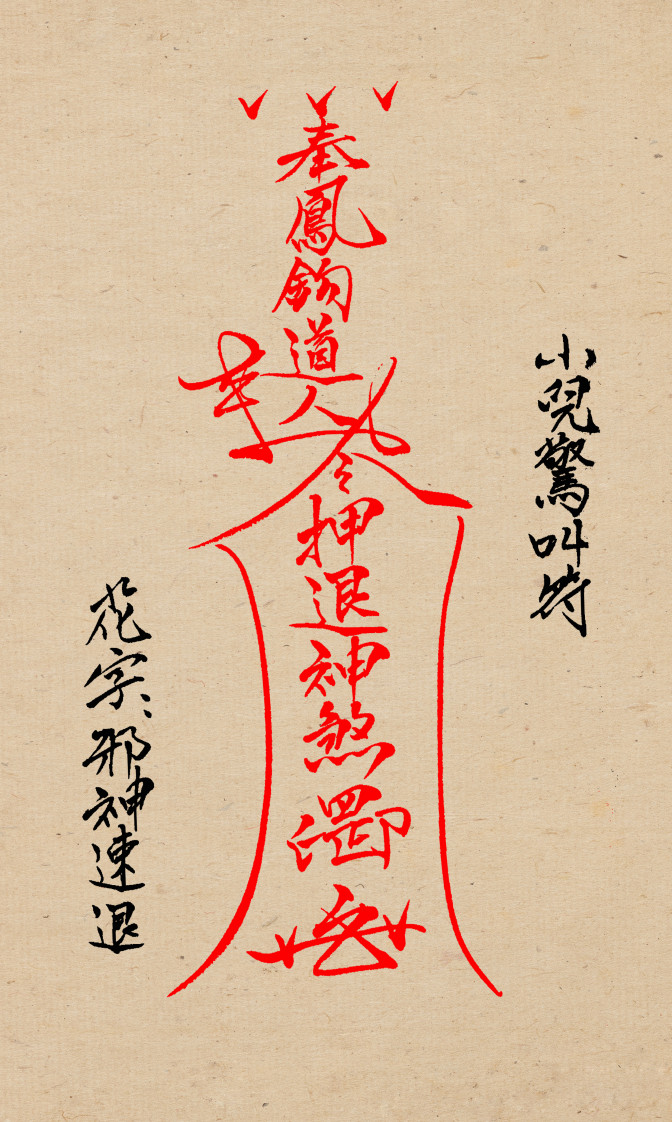 小兒驚叫符
奉鳳鈎道人令押退神煞
花字、邪神速退